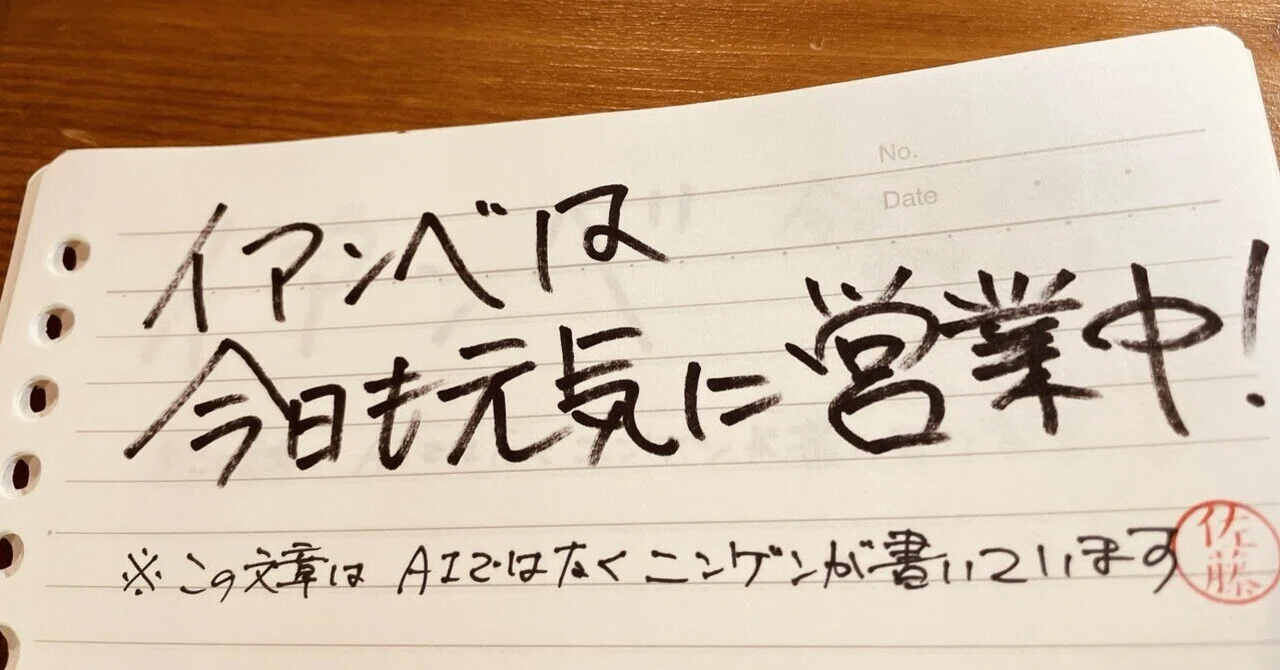 No.
Date
イアンベは
今日も元気に営業中!
※この文章はAIではなくニンゲンが書いています
佐藤